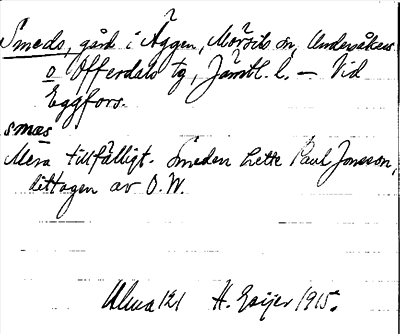 Smeds, gård i Äggen, Mörsils sn, Undersåkers
o Offerdals tg, Jämtl. l. — Vid
Eggfors.
smæs
Mera tillfälligt. Smeden hette Paul Jonsson,
dittagen av O.W.
Alma 121 H. Geijer 1915.